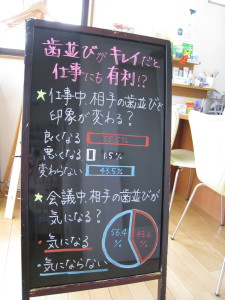 歯並びがキレイだと
仕事にも有利!?
★仕事中、相手の歯並びで
印象が変わる?
良くなる
悪くなる 1.5%
変わらない 43.5%
★会議中、相手の歯並びが
気になる?
・気になる
・気にならない
56.4
%
43.6
%